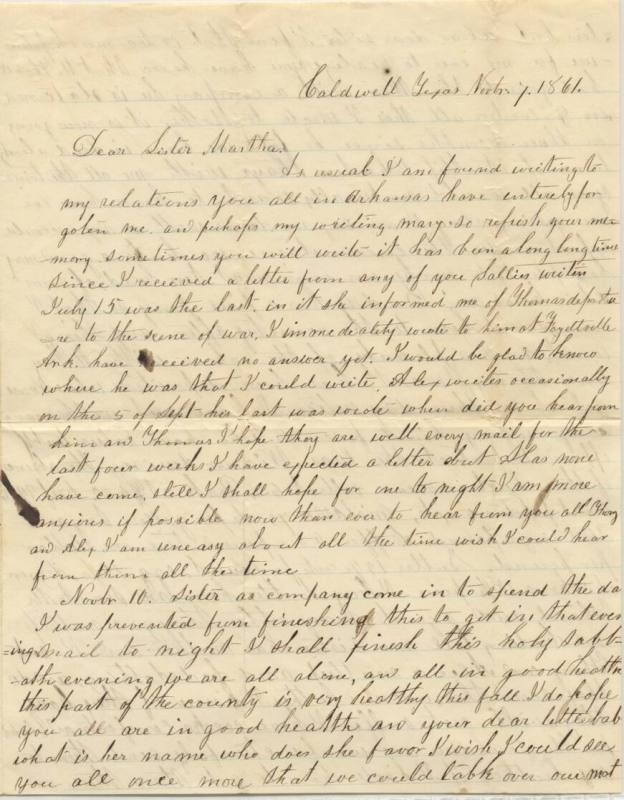 Caldwell Texas Novbr. 7. 1861.
Dear Sister Martha.
As usual I am found writing to
my relations you all in Arkansas have entirely for
goten me. and perhaps my writing mary. so refresh your me=
mory sometimes you will write it has been a long long time
since I received a letter from any of you Sallies writen
July 15 was the last. in it she informed me of Thomas departu
re to the scene of war. I immedeatity wrote to him at Fayettville
Ark. have received no answer yet. I would be glad to know
where he was that I could write. Alex writes occasionally
on the 5 of Sept his last was wrote when did you hear from
him an Thomas I hope they are well every mail for the
last four weeks I have expected a letter but Alas none
have come, still I shall hope for one to night I am more
anxious if possible now than ever to hear from you all
and Alex I am uneasy about all the time wish I could hear
from them all the time
Novbr 10. Sister as company come in to spend the da
I was prevented from finishing this to get in that even
=ing mail to night I shall finish this holy Sabb=
=ath evening we are all alone, an all in good health
this part of the county is very healthy this fall I do hope
you all are in good health an your dear little bab
what is her name who does she favor I wish I could see
you all once more that we could talk over our mot